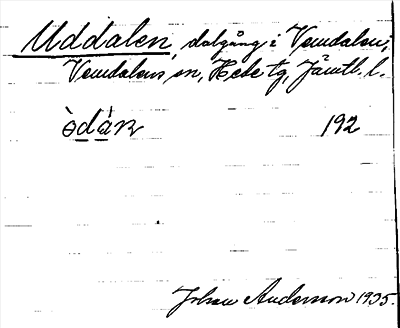 Uddalen, dalgång i Vemdalen,
Vemdalens sn, Hede tg, Jämtl. l.
òdán 192
Johan Andersson 1935.